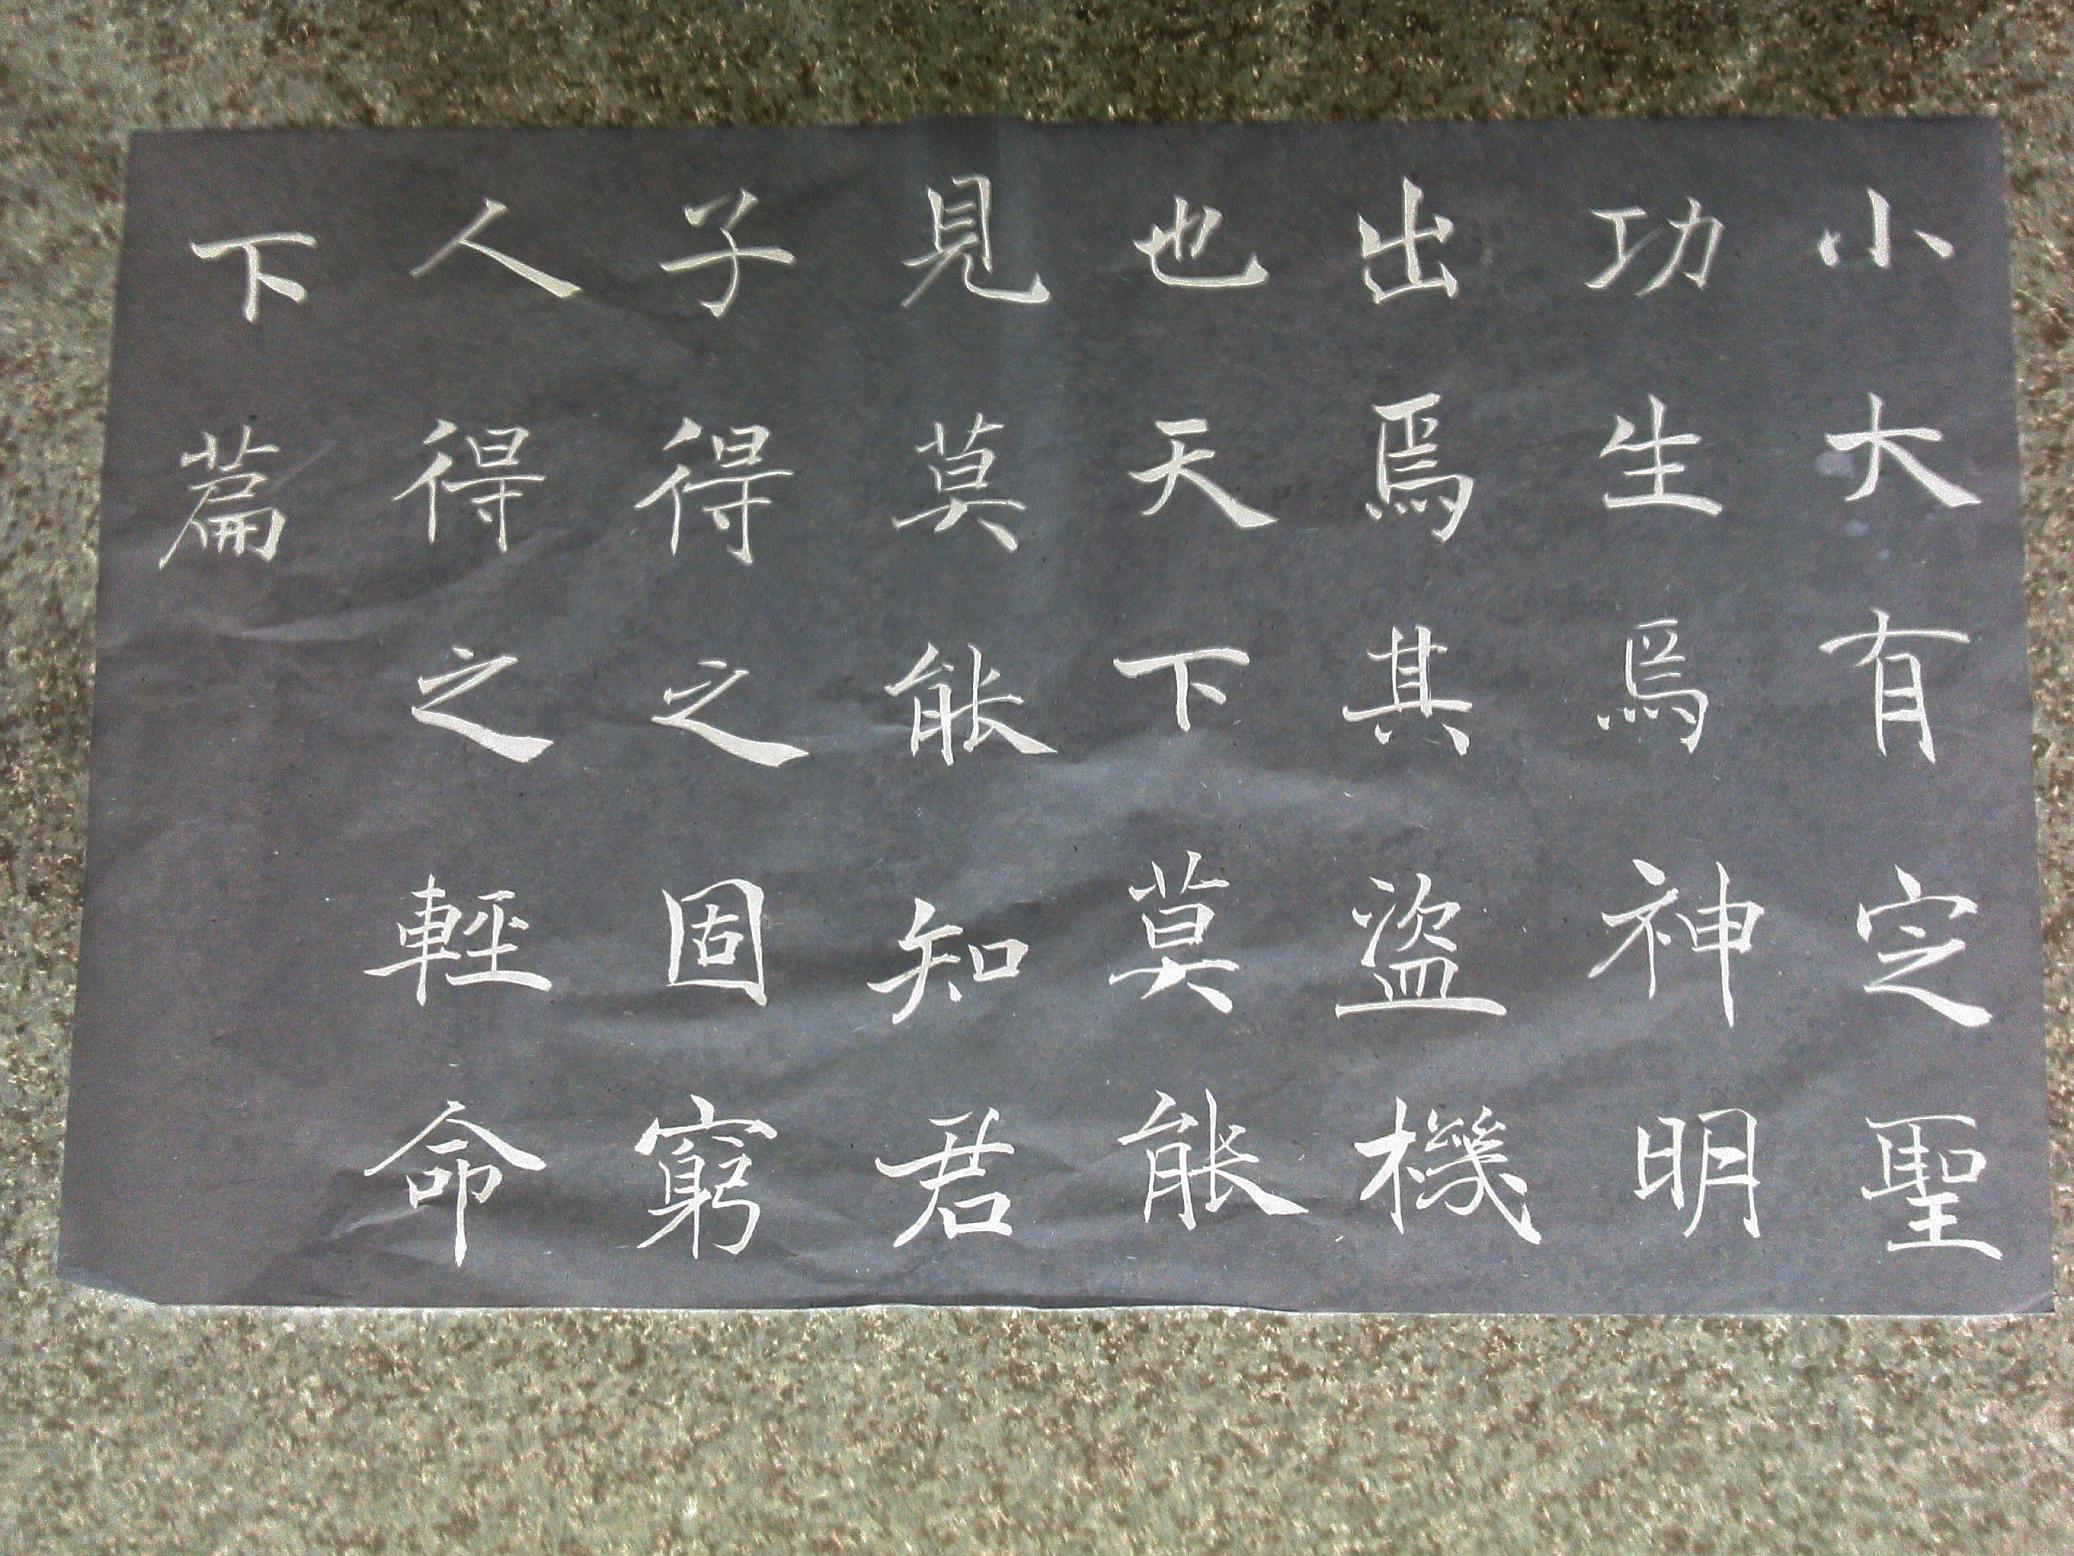 小大有定聖
功生焉神明
出焉其盜機
也天下莫能
見莫能知君
子得之固窮
人得之輕命
下篇